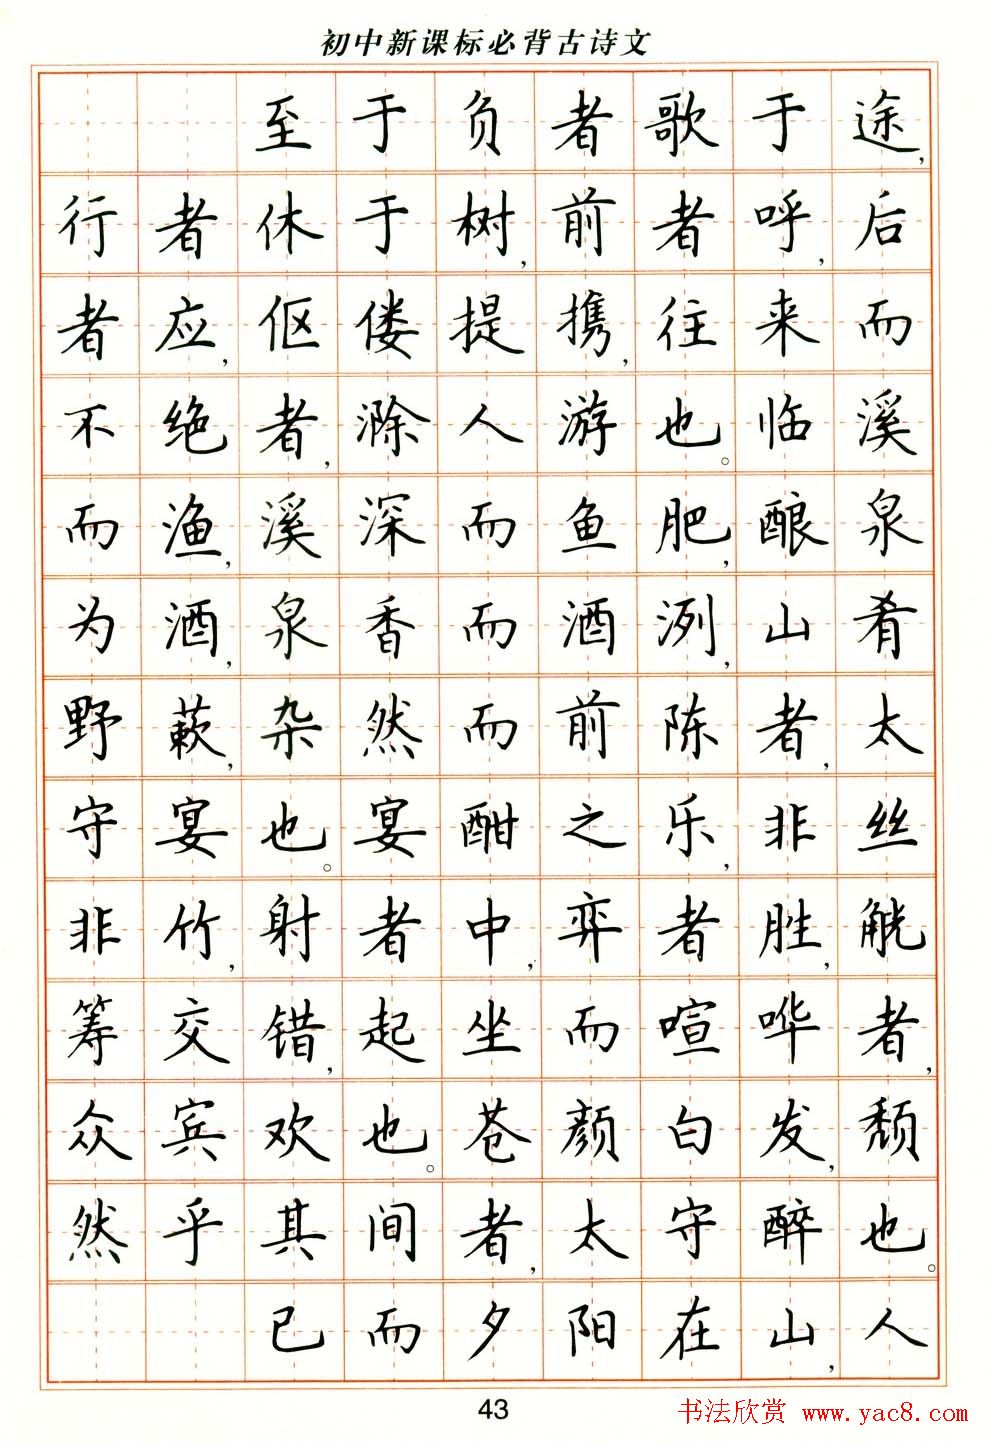 初中新课标必背古诗文
至于负者歌于途，
行者休于树，前者呼，后
者应，伛偻提携，往来而
不绝者，滁人游也。临溪
而渔，溪深而鱼肥，酿泉
为酒，泉香而酒洌，山肴
野蔌，杂然而前陈者，太
守宴也。宴酣之乐，非丝
非竹，射者中，弈者胜，觥
筹交错，起坐而喧哗者，
众宾欢也。苍颜白发，颓
然乎其间者，太守醉也。
已而夕阳在山，人
43
书法欣赏 www.yac8.com